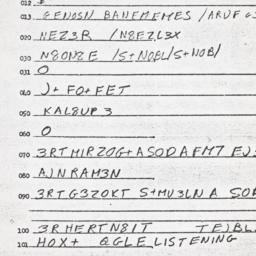 012
013 GENOSN BANEMEMES /ARUF G
020 NEZ3R /N8EZL3X
030 N8ON2E /S+NOBL/S+NOB/
031 O
040 J+ FO+FET
050 KAL8UP 3
060 O
070 3RTMIRZOG+ASODAFM7 EJ
080 AJNRAM3N
090 3RTG3ZOKT S+MU3LNA SO
100 3RHERTN8IT TEJBL
101 HOX+ QGLE LISTENING